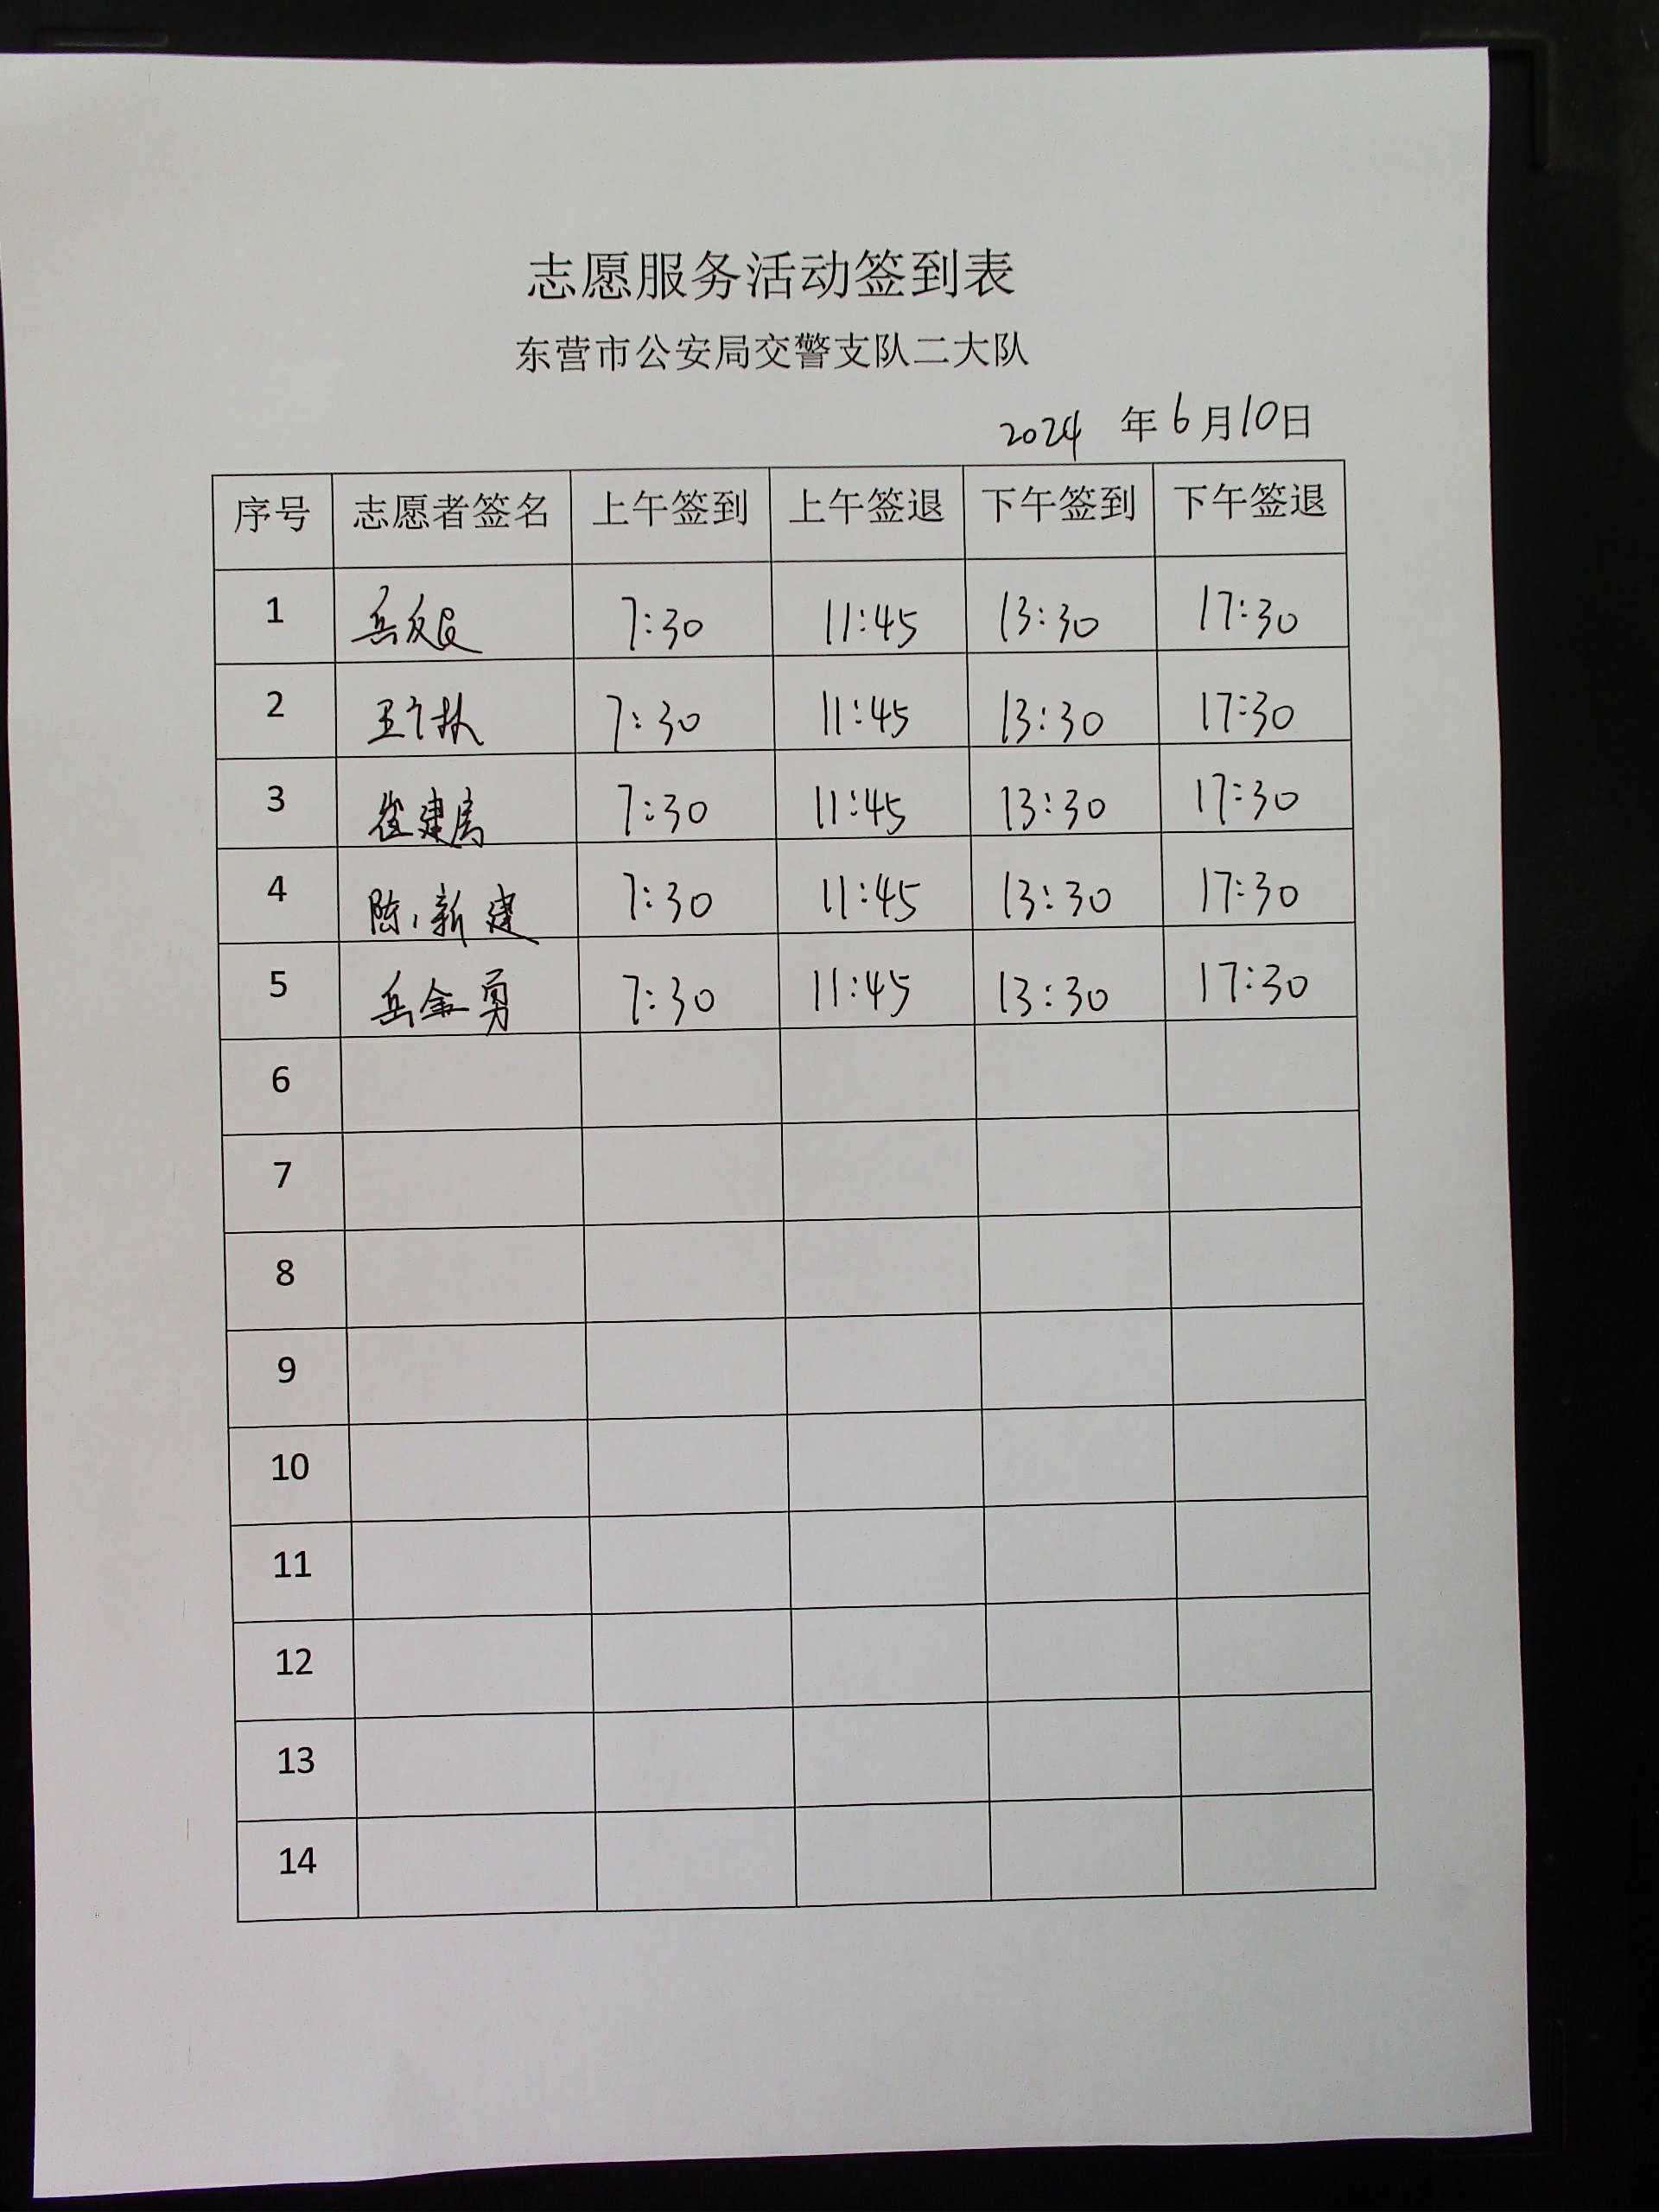 志愿服务活动签到表
东营市公安局交警支队二大队
2024 年 6 月 10 日
序号 志愿者签名 上午签到 上午签退 下午签到 下午签退
1 岳 7:30 11:45 13:30 17:30
2 王 林 7:30 11:45 13:30 17:30
3 崔建 7:30 11:45 13:30 17:30
4 陈新建 7:30 11:45 13:30 17:30
5 岳金勇 7:30 11:45 13:30 17:30
6
7
8
9
10
11
12
13
14